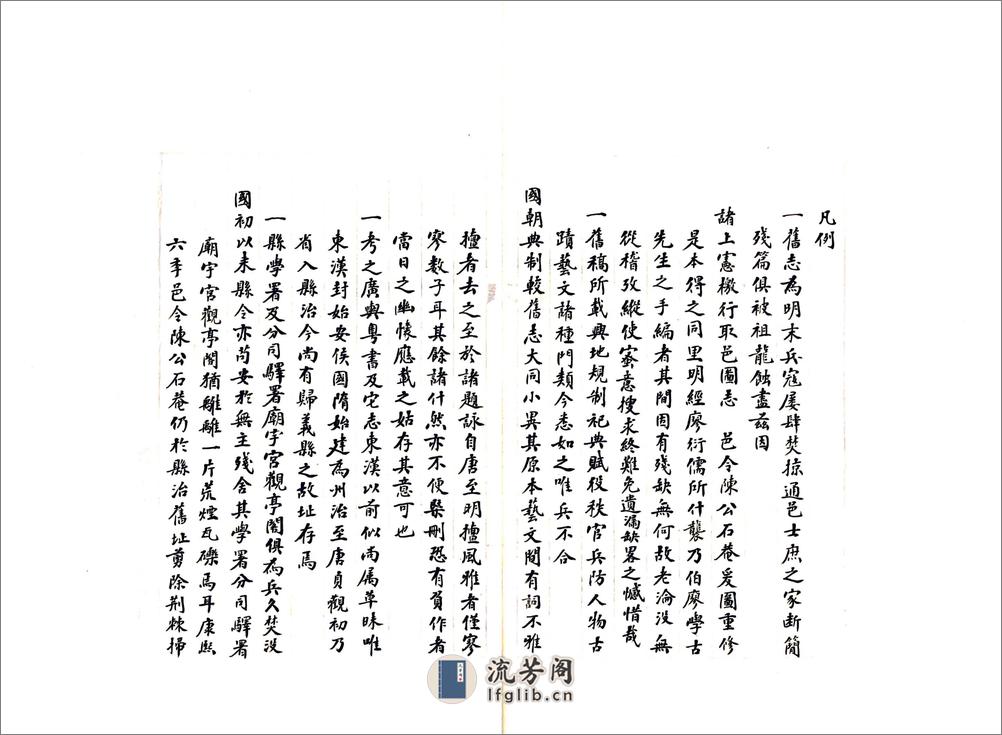 凡例
一舊志為明末兵寇屢肆焚掠通邑士庶之家斷簡
殘篇俱被祖龍蝕盡茲因
諸上憲檄行取邑圖志 邑令陳公石菴爰圖重修
是本得之同里明經廖衍儒所什襲乃伯廖學古
先生之手編者其間固有殘缺無何故老淪沒無
從稽攷縱使蜜意搜求終難免遺漏缺畧之憾惜哉
一舊稿所載輿地規制祀典賦役秩官兵防人物古
蹟藝文諸種門類今悉如之唯兵不合
國朝典制較舊志大同小異其原本藝文間有詞不雅
擅者去之至於諸題詠自唐至明擅風雅者僅寥
寥數子耳其餘諸什然亦不便槩刪恐有負作者
當日之幽懷應載之姑存其意可也
一考之廣輿粵書及它志東漢以前似尚属草昧唯
東漢封始安侯國隋始建為州治至唐貞觀初乃
省入縣治今尚有歸義縣之故址存焉
一縣學署及分司驛署廟宇宮觀亭閣俱為兵久焚没
國初以来縣令亦苟安於無主殘舍其學署分司驛署
廟宇宮觀亭閣猶雖離一片荒煙瓦礫焉耳康熙
六年邑令陳公石菴仍於縣治舊址剪除荆棘掃
流芳阁
lfglib.cn